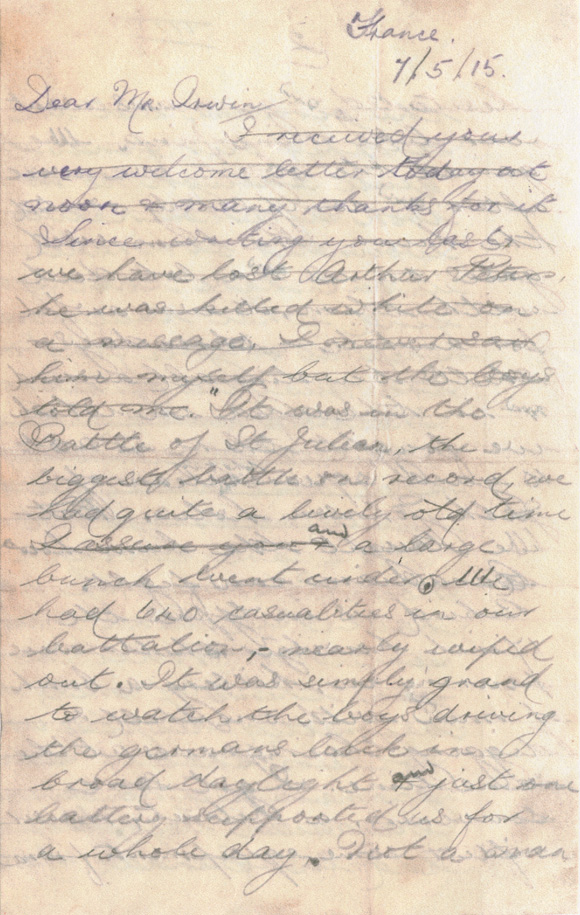 France.
7/5/15.
Dear Mr. Irwin
I received your
very welcome letter today at
noon & many thanks for it.
Since writing you last
we have lost Arthur Peters,
he was killed while on
a message. I never saw
him myself but the boys
told me. "It was in the
Battle of St Julien, the
biggest battle on record, we
had quite a lively old time
I assure you & and a large
bunch went under. We
had 640 casualities in our
battalion, - nearly wiped
out. It was simply grand
to watch the boys driving
the germans back in
broad daylight & and just one
battery supported us for
a whole day. Not a man